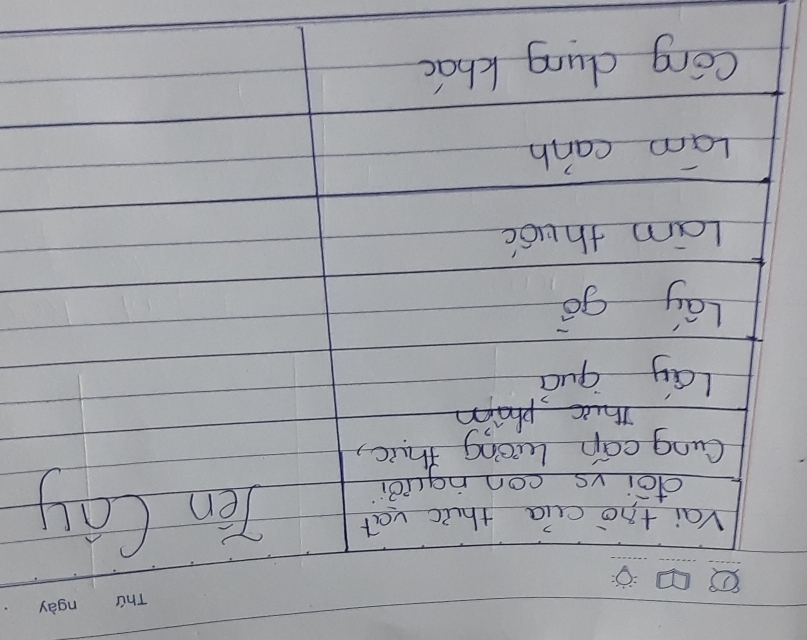 Thứ ngày
Vai trò của thực vật
đối vs con người
Tên Cây
Cung cấp lương thực,
thực phẩm
Lấy quả
Lấy gỗ
Làm thuốc
Làm cảnh
Công dụng khác